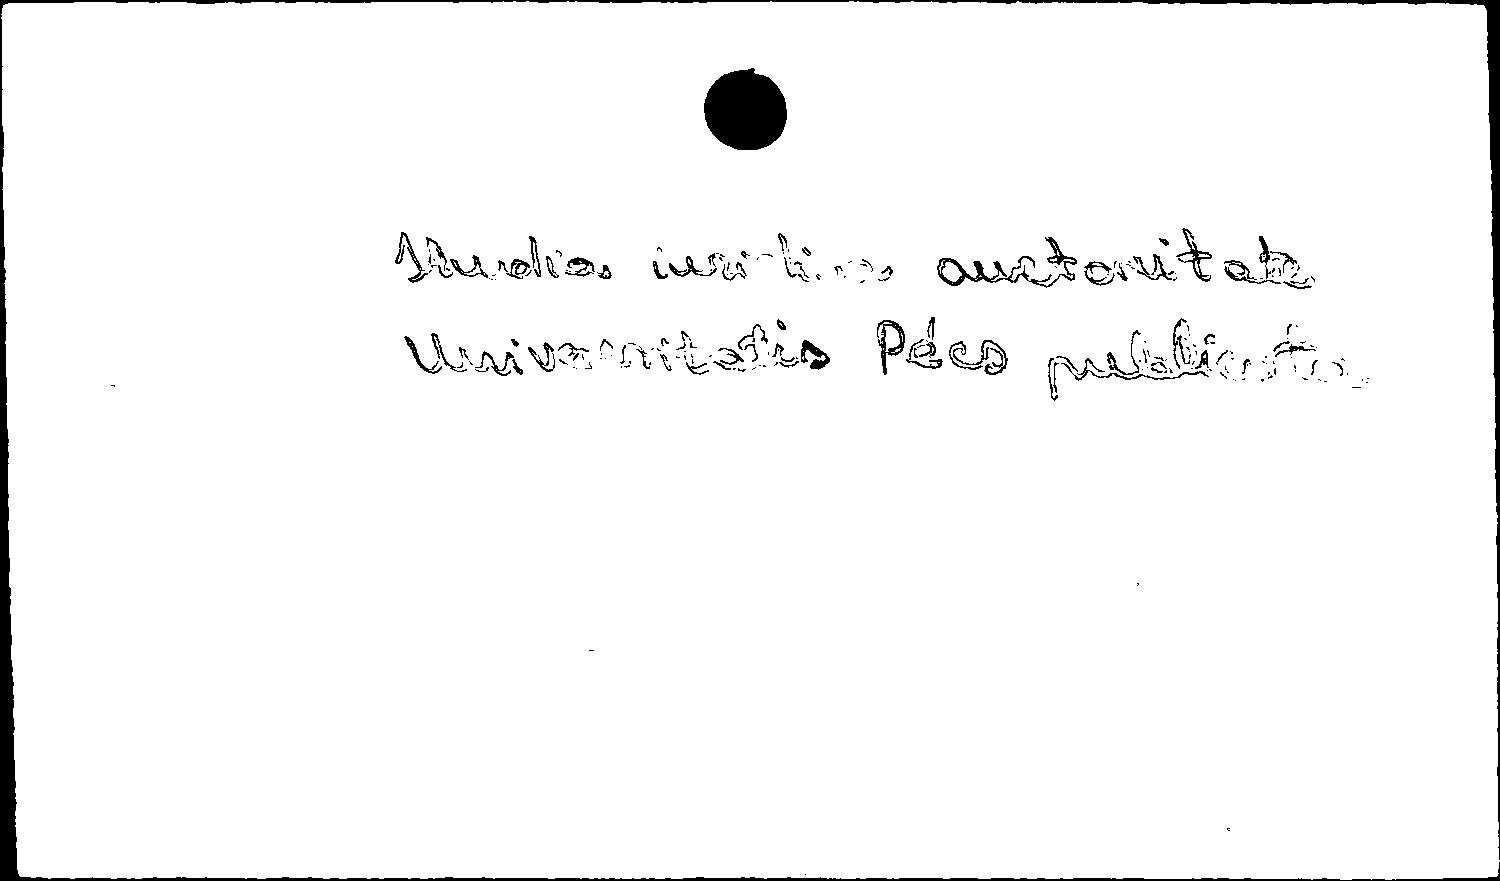 Studia iuridica auctoritate
Universitatis Pécs publicata